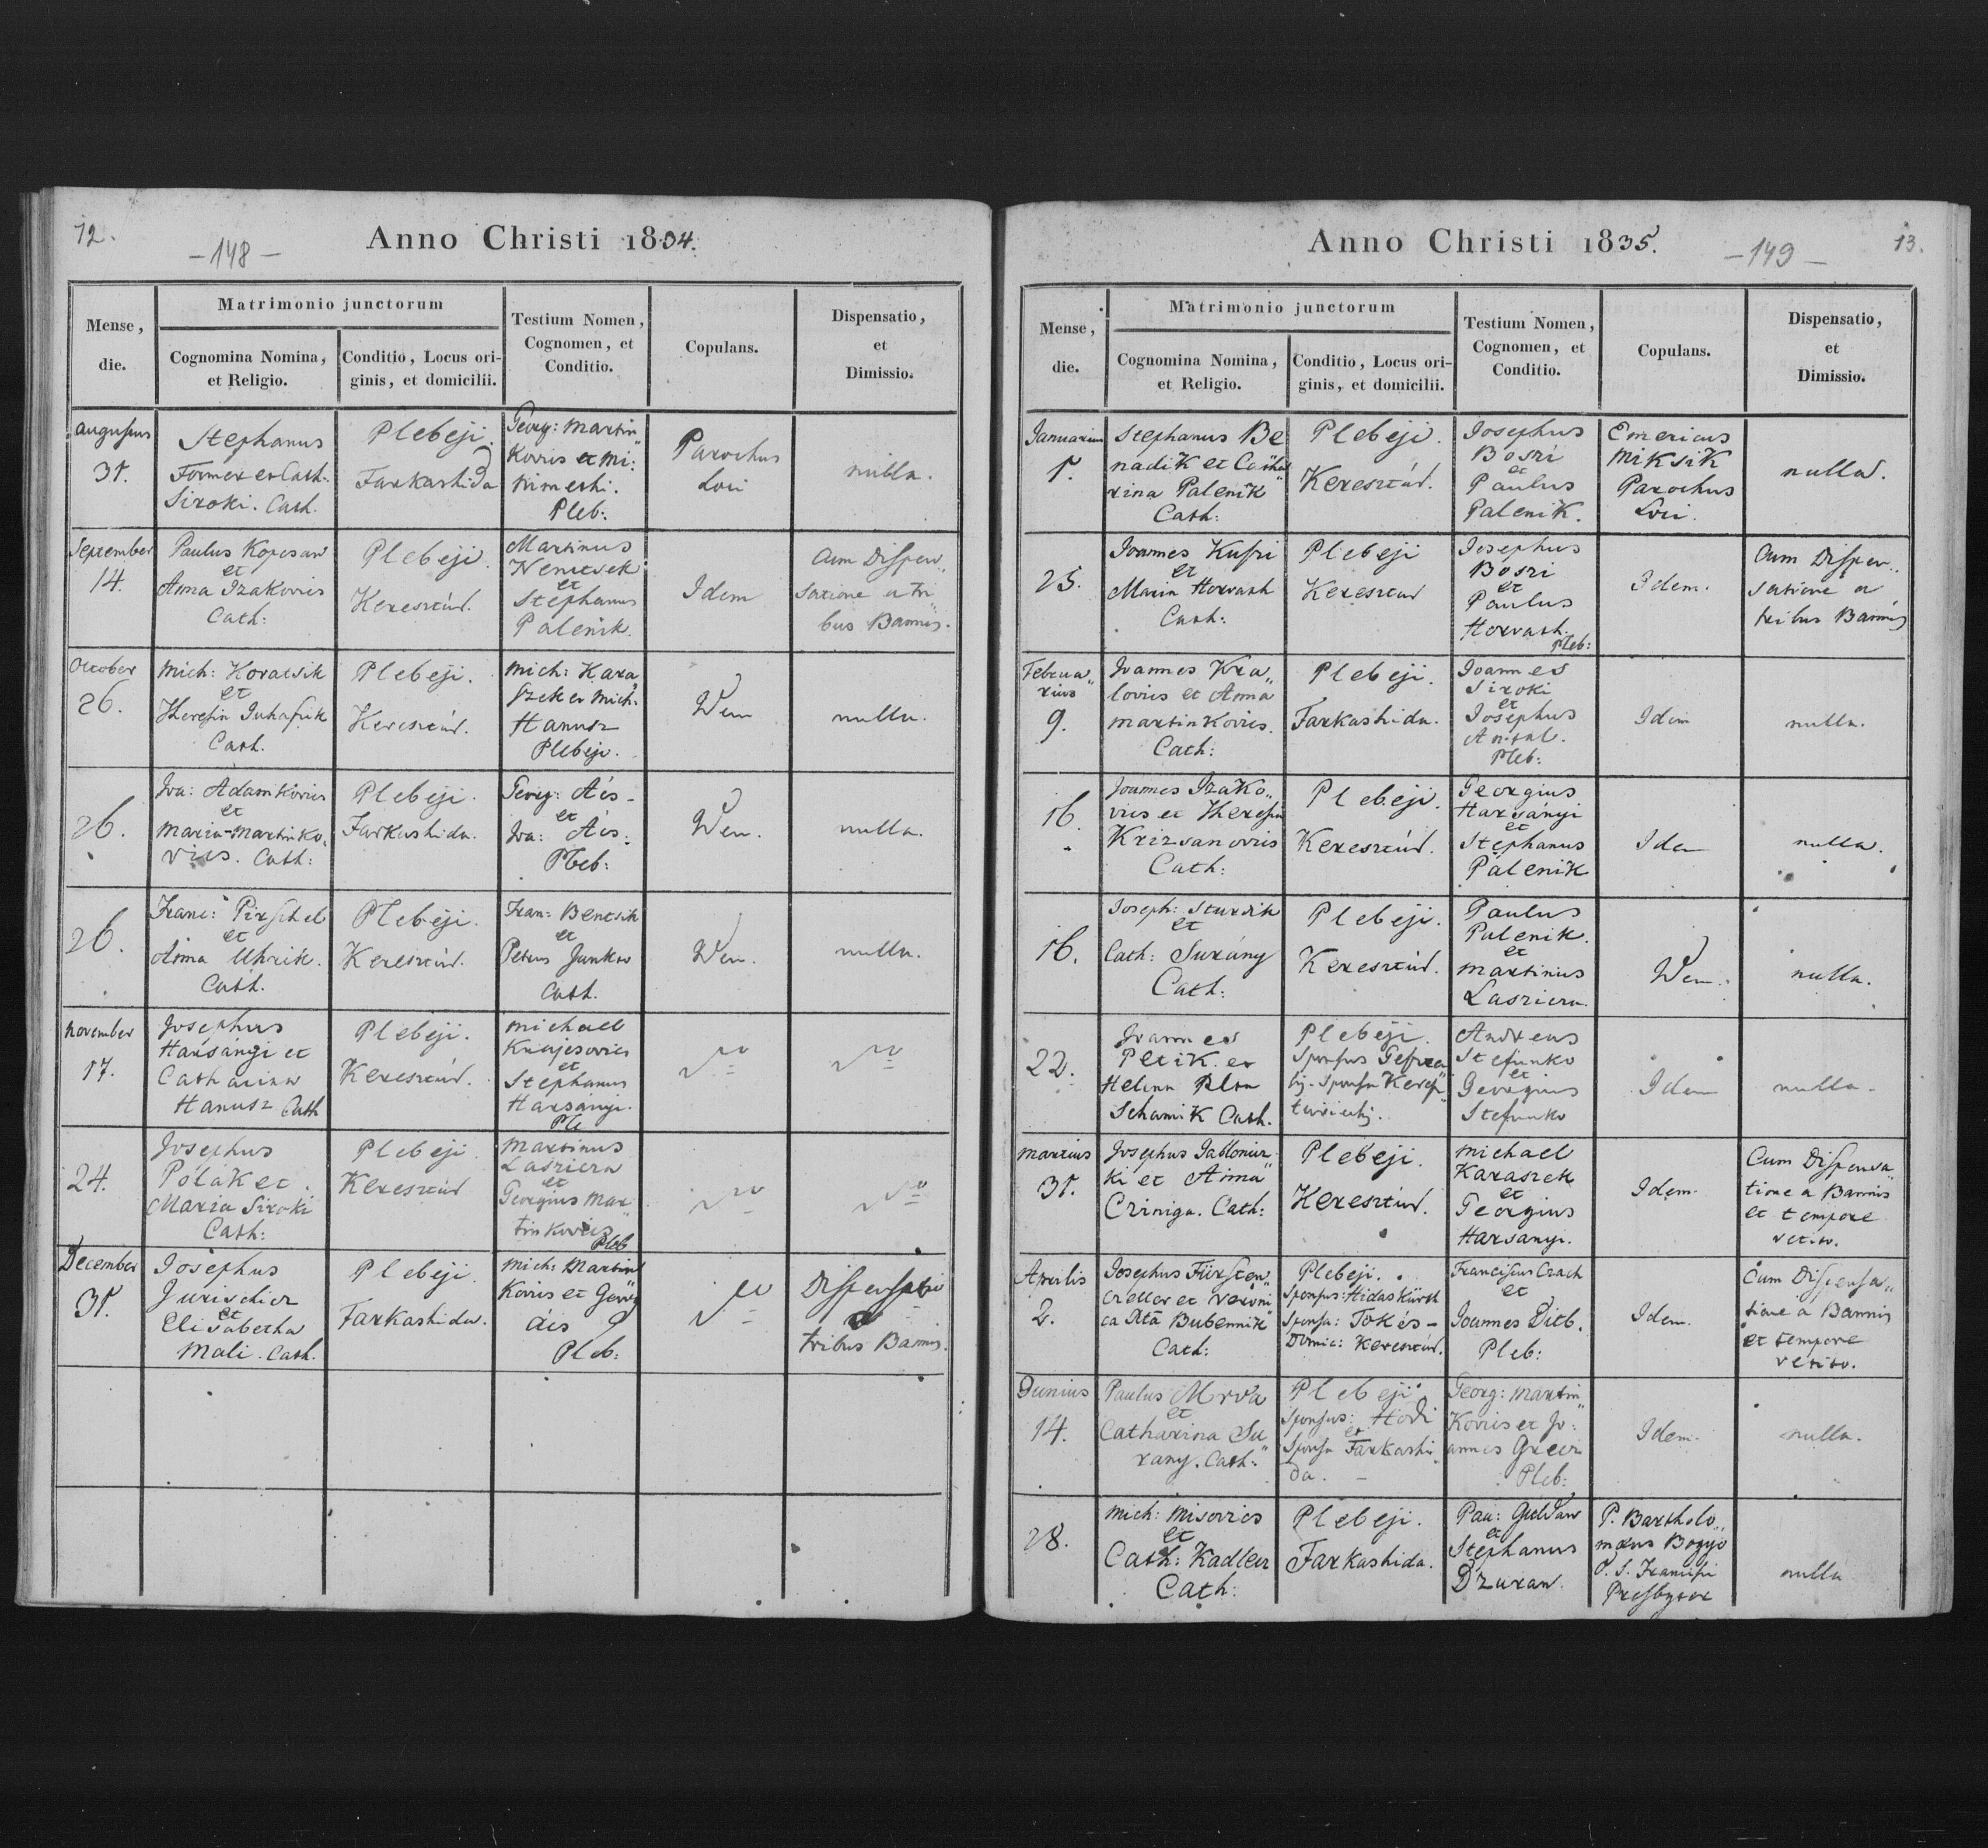 12.
— 148 —
Anno Christi 1834.
Mense,
die.
Matrimonio junctorum
Cognomina Nomina,
et Religio.
Conditio, Locus ori-
ginis, et domicilii.
Testium Nomen,
Cognomen, et
Conditio.
Copulans.
Dispensatio,
et
Dimissio.
Augustus
31.
Stephanus
Formex et Cath.
Siroki. Cath.
Plebeji.
Farkashida
Georg: Martin„
kovics et Mi:
Pleb:
Parochus
Loci
nulla.
September
14.
Paulus Kopcsan
et
Anna Izakovics
Cath:
Plebeji.
Keresztúr.
Martinus
Nemcsek
et
Stephanus
Palenik.
Idem
Cum Dispen„
satione a tri„
bus Bannis.
October
26.
Mich: Kovacsik
et
Theresia Juhasrik
Cath.
Plebeji.
Keresztúr.
Mich: Kara„
szek et Mich:
Hanusz
Plebeji.
Idem
nulla.
26.
Joa: Adamkovics
et
Maria Martinko„
vics. Cath:
Plebeji.
Farkashida.
Georg: Ács
et
Joa: Ács.
Pleb:
Idem.
nulla.
26.
Franc: Pirschel
et
Anna Uhrik.
Cath.
Plebeji.
Keresztúr.
Fran: Bencsik
et
Petrus Junkov
Cath.
Idem.
nulla.
November
17.
Josephus
Harsányi et
Catharina
Hanusz Cath
Plebeji.
Keresztúr.
Michael
et
Stephanus
Harsányi.
Ple
24.
Josephus
Polák et
Maria Siroki
Cath:
Plebeji
Keresztúr
Martinus
Laszicza
et
Georgius Mar„
tinkovics
Pleb
December
31.
Josephus
Jurischicz
et
Elisabetha
Mali. Cath.
Plebeji.
Farkashida.
Mich: Martin„
kovics et Georg
ács
Pleb:
Dispensatio
a
tribus Bannis.
Anno Christi 1835.
— 149 —
13.
Mense,
die.
Matrimonio junctorum
Cognomina Nomina,
et Religio.
Conditio, Locus ori-
ginis, et domicilii.
Testium Nomen,
Cognomen, et
Conditio.
Copulans.
Dispensatio,
et
Dimissio.
Januarius
Stephanus Be
nadik et Catha
rina Palenik
Cath:
Plebeji.
Keresztúr.
Josephus
Boszi
et
Paulus
Palenik.
Emericus
Miksik
Parochus
Loci.
nulla.
25.
Joannes Kuszi
et
Maria Horvath
Cath:
Plebeji
Keresztur
Josephus
Boszi
et
Paulus
Horvath.
Pleb:
Idem.
Cum Dispen„
satione a
tribus Bannis
Februa„
rius
9.
Joannes Kra„
lovics et Anna
Martinkovics.
Cath:
Plebeji.
Farkashida.
Joannes
Siroki
et
Josephus
Antal.
Pleb:
Idem
nulla.
16.
Joannes Izako„
vics et Theresia
Krizsanovics
Cath:
Plebeji.
Keresztúr.
Georgius
Harsányi
et
Stephanus
Palenik
Idem
nulla.
16.
Joseph: Sturdik
et
Cath: Surány
Cath:
Plebeji.
Keresztúr.
Paulus
Palenik.
et
Martinus
Laszicza.
Idem.
nulla.
22.
Joannes
Petik et
Helena
Schamik Cath.
Plebeji.
Andreas
Stefunko
et
Georgius
Stefunko
Idem
nulla.
Martius
31.
Josephus Jablonicz„
ki et Anna
Cziniga. Cath:
Plebeji.
Keresztúr.
Michael
Karaszek
et
Georgius
Harsanyi.
Idem.
Cum Dispensa„
tione a Bannis
et tempore
vetito.
Aprilis
2.
Josephus Fürsten„
czeller et Veroni„
ca Rta Bubennik
Cath:
Plebeji.
Sponsus: Hidaskürth
Sponsa: Tokés
Domic: Keresztúr.
Franciscus Czach
et
Joannes Ditb.
Pleb:
Idem.
Cum Dispensa„
tione a Bannis
et tempore
vetito.
Junius
14.
Paulus Mrva
et
Catharina Su„
rany. Cath:
Plebeji
Sponsus: Hodi
et
Sponsa Farkashi„
da.
Georg: Martin„
kovics et Jo:
annes
Pleb:
Idem.
nulla.
28.
Mich: Misovics
et
Cath: Kadlecz
Cath:
Plebeji.
Farkashida.
Pau: Guldan
et
Stephanus
Dzuran.
P. Bartholo„
mæus Bogyó
O. S. Francisci
Presbyter
nulla